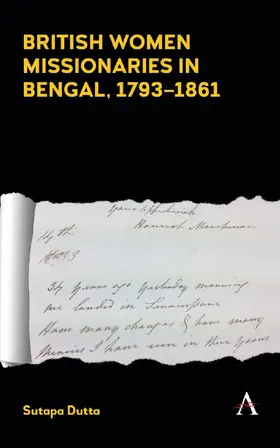 BRITISH WOMEN
MISSIONARIES IN
BENGAL, 1793–1861
Hannah Marshman
34 years ago yesterday morning
we landed in Serampore
Have many changes & how many
I have seen in these years
Sutapa Dutta
A